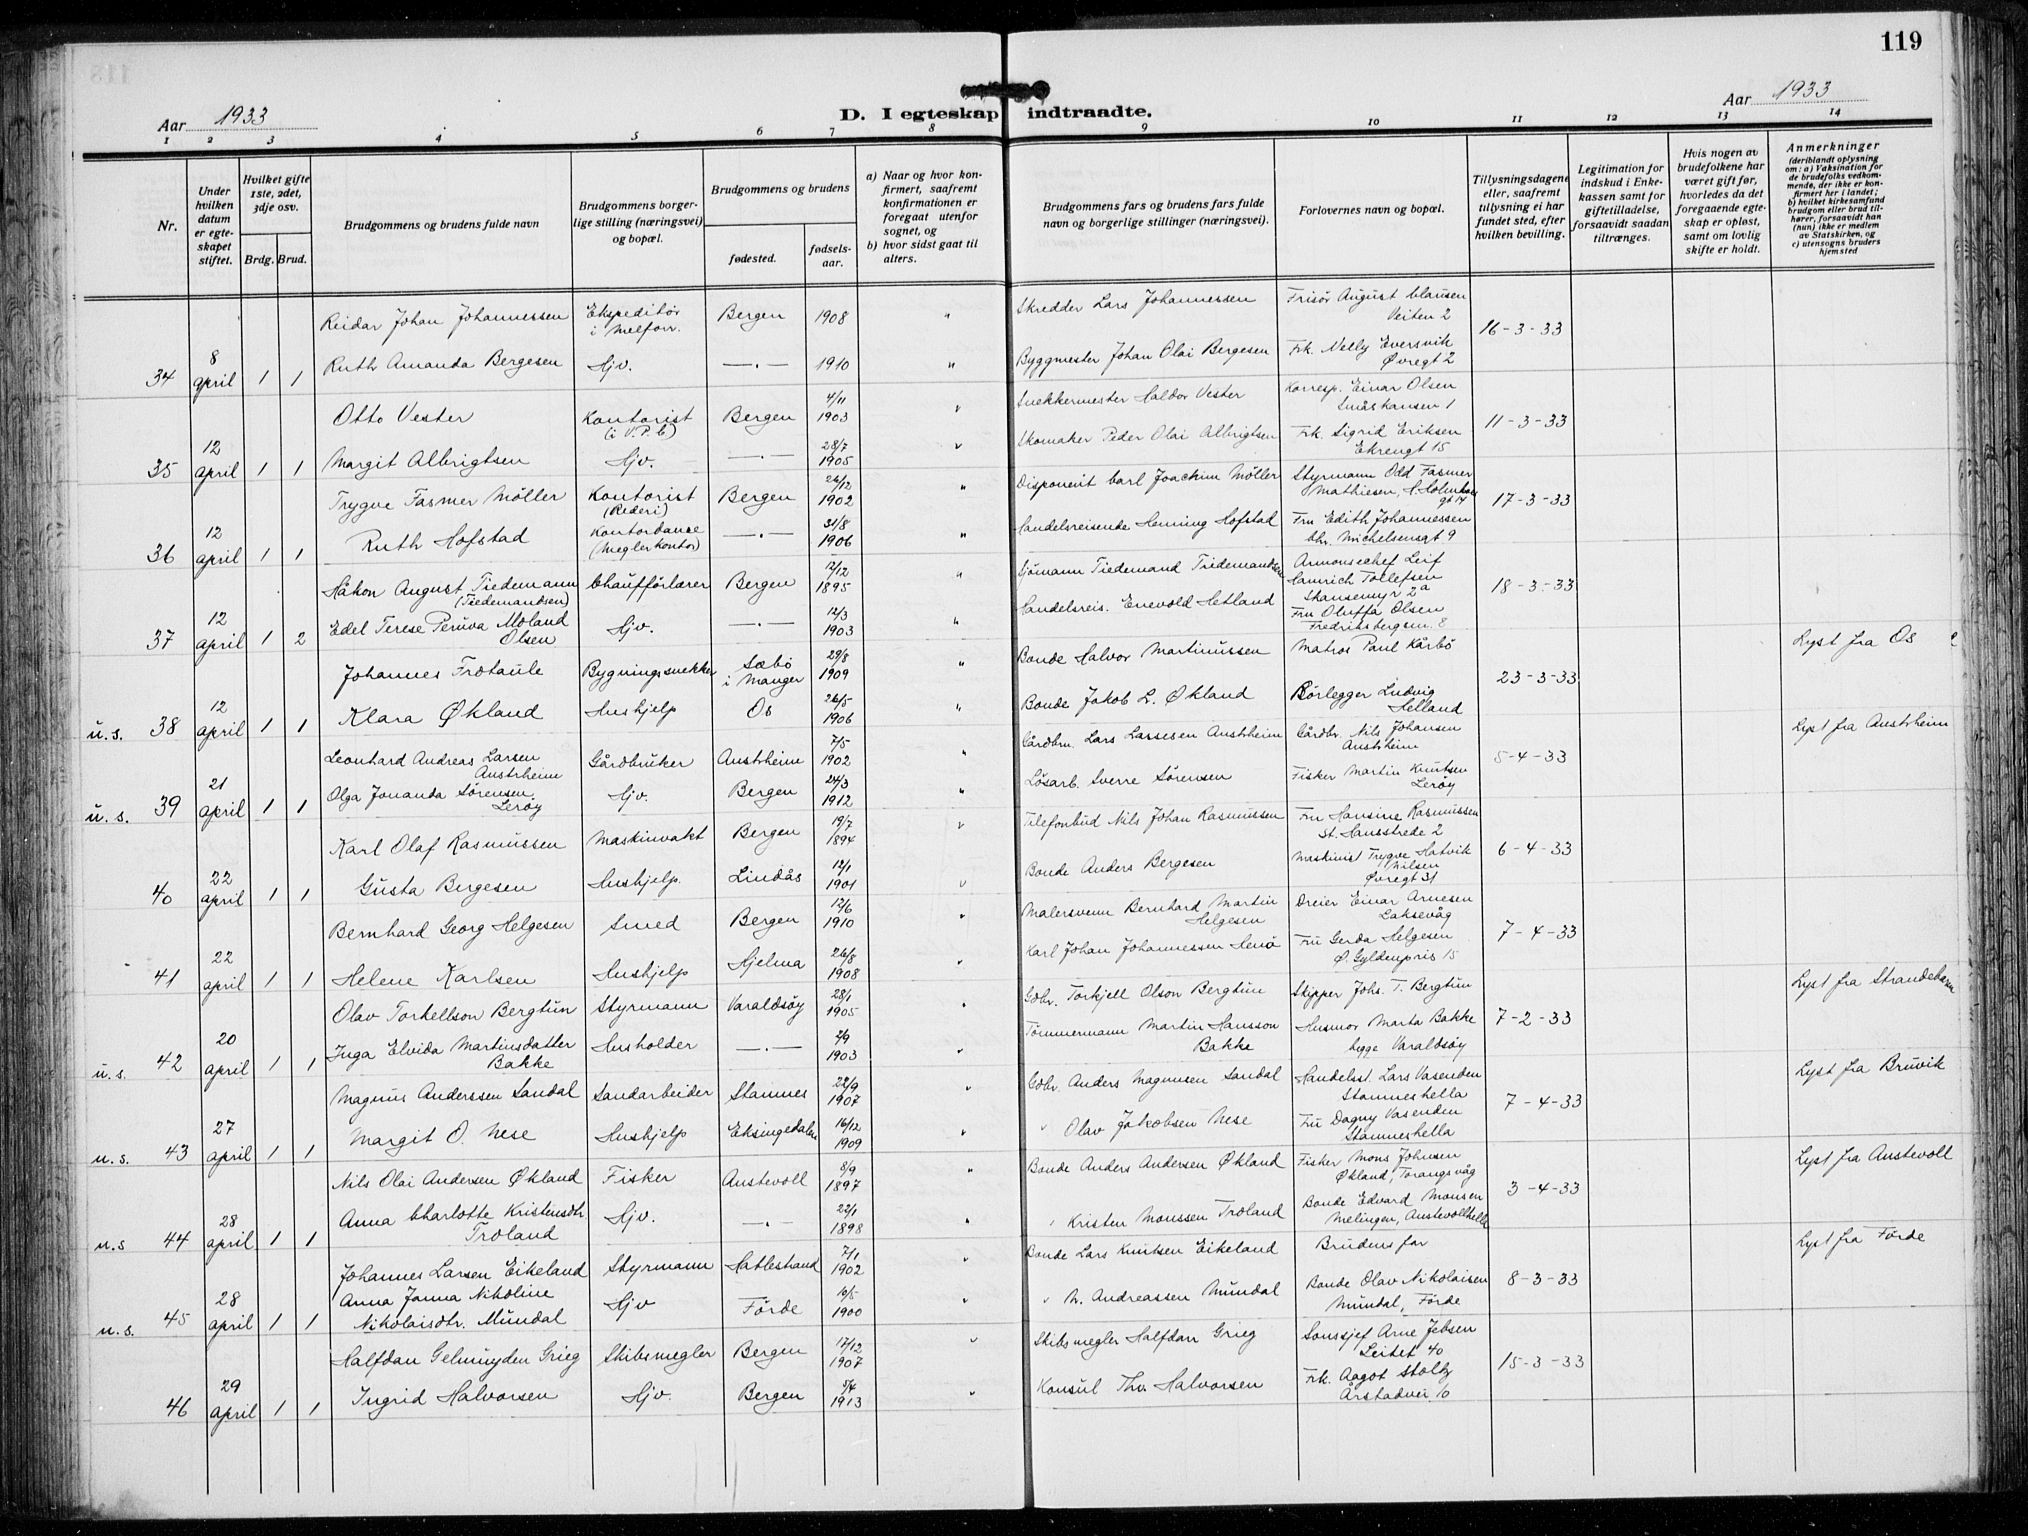 119
Aar 1933
D. I egteskap indtraadte.
Aar 1933
1 2 3 4 5 6 7 8 9 10 11 12 13 14
Nr.
Under hvilken datum er egteskapet stiftet.
Hvilket gifte 1ste, 2det, 3dje osv.
Brdg. Brud.
Brudgommens og brudens fulde navn
Brudgommens borgerlige stilling (næringsvei) og bopæl.
Brudgommens og brudens
fødested.
fødselsaar.
a) Naar og hvor konfirmert, saafremt konfirmationen er foregaat utenfor sognet, og
b) hvor sidst gaat til alters.
Brudgommens fars og brudens fars fulde navn og borgerlige stillinger (næringsvei).
Forlovernes navn og bopæl.
Tillysningsdagene eller, saafremt tillysning ei har fundet sted, efter hvilken bevilling.
Legitimation for indskud i Enkekassen samt for giftetilladelse, forsaavidt saadan tiltrænges.
Hvis nogen av brudefolkene har været gift før, hvorledes da det foregaaende egteskap er opløst, samt om lovlig skifte er holdt.
Anmerkninger
(deriblandt oplysning om: a) Vaksination for de brudefolks vedkommende, der ikke er konfirmert her i landet; b) hvilket kirkesamfund brudgom eller brud tilhører, forsaavidt han (hun) ikke er medlem av Statskirken, og c) utensogns bruders hjemsted
Reidar Johan Johannessen Ekspeditör i Melforr. Bergen 1908 " Skredder Lars Johannessen Frisör August Clausen Veiten 2 16-3-33
34 8 april 1 1 Ruth Amanda Bergesen Hjv. —"— 1910 " Byggmester Johan Olai Bergesen Frk. Nelly Eversvik Øvregt 2
Otto Vester Kontorist (i V.P.C) Bergen 4/11 1903 " Snekkermester Haldor Vester Korresp. Einar Olsen Småskansen 1 11-3-33
35 12 april 1 1 Margit Albrigtsen Hjv. —"— 28/7 1905 " Skomaker Peder Olai Albrigtsen Frk. Sigrid Eriksen Ekrengt 15
Trygve Fasmer Möller Kontorist (Rederi) Bergen 26/12 1902 " Disponent Carl Joachim Möller Styrmann Odd Fasmer Mathiesen, H. Holmboes gt 14 17-3-33
36 12 april 1 1 Ruth Hofstad Kontordame (Meglerkontor) —"— 31/8 1906 " Handelsreisende Henning Hofstad Fru Edith Johannessen Chr. Michelsensgt 9
Håkon August Tiedemann (Tiedemandsen) Chaufförlærer Bergen 12/12 1895 " Sjömann Tiedemand Tiedemandsen Annonsechef Leif Hamrich Tollefsen Skansemyr 2a 18-3-33
37 12 april 1 2 Edel Terese Peruva Moland Olsen Hjv. —"— 12/3 1903 " Handelsreis. Enevold Hetland Fru Oluffa Olsen Fredriksbergsm. 8
Johannes Frotaule Bygningssnekker Sæbö i Manger 29/8 1909 " Bonde Halvor Martinussen Matros Paul Kårbö 23-3-33 Lyst fra Os
u.s. 38 12 april 1 1 Klara Økland Hushjelp Os 26/5 1906 " Bonde Jakob L. Økland Rörlegger Ludvig Helland
Leonhard Andreas Larsen Austrheim Gårdbruker Austrheim 7/5 1902 " Gårdbr. Lars Lassesen Austrheim Gårdbr. Nils Johansen Austrheim 5-4-33 Lyst fra Austrheim
u.s. 39 21 april 1 1 Olga Jonanda Sörensen Leröy Hjv. Bergen 24/3 1912 " Lösarb. Sverre Sörensen Fisker Martin Knutsen Leröy
Karl Olaf Rasmussen Maskinvakt Bergen 19/7 1894 " Telefonbud Nils Johan Rasmussen Fru Hansine Rasmussen St. Hansstrede 2 6-4-33
40 22 april 1 1 Gusta Bergesen Hushjelp. Lindås 12/1 1901 " Bonde Anders Bergesen Maskinist Trygve Hatvik Nilsen Øvregt 31
Bernhard Georg Helgesen Smed Bergen 12/6 1910 " Malersvenn Bernhard Martin Helgesen Dreier Einar Arnesen Laksevåg 7-4-33
41 22 april 1 1 Helene Karlsen Hushjelp Hjelma 26/8 1908 " Karl Johan Johannessen Henö Fru Gerda Helgesen Ø. Gyldenpris 15
Olav Torkellson Bergtun Styrmann Varaldsöy 28/1 1905 " Gdbr. Torkjell Olson Bergtun Skipper Johs. T. Bergtun 7-2-33 Lyst fra Strandebarm
u.s. 42 20 april 1 1 Inga Elvida Martinsdatter Bakke Husholder —"— 2/9 1903 " Tömmermann Martin Hansson Bakke Husmor Marta Bakke begge Varaldsöy
Magnus Anderssen Sandal Sandarbeider Stamnes 22/9 1907 " Gdbr. Anders Magnusen Sandal Handelsst. Lars Vasenden Stamneshella 7-4-33 Lyst fra Bruvik
u.s. 43 27 april 1 1 Margit O. Nese Hushjelp Eksingedalen 16/12 1909 " " Olav Jakobsen Nese Fru Dagny Vasenden Stamneshella
Nils Olai Andersen Økland Fisker Austevoll 8/9 1897 " Bonde Anders Andersen Økland Fisker Mons Johnsen Økland, Torangsvåg 3-4-33 Lyst fra Austevoll
u.s 44 28 april 1 1 Anna Charlotte Kristensdtr Troland Hjv. —"— 22/1 1898 " " Kristen Monssen Troland Bonde Edvard Monsen Melingen, Austevollhella
Johannes Larsen Eikeland Styrmann Hatlestrand 7/1 1902 " Bonde Lars Knutsen Eikeland Brudens far 8-3-33 Lyst fra Förde
u.s. 45 28 april 1 1 Anna Janna Nikoline Nikolaisdtr. Mundal Hjv Förde 16/5 1900 " " N. Andreassen Mundal Bonde Olav Nikolaisen Mundal, Förde
Halfdan Gelmuyden Grieg Skibsmegler Bergen 17/12 1907 " Skibsmegler Halfdan Grieg Sonssjef Arne Jebsen Leitet 40 15-3-33
46 29 april 1 1 Ingrid Halvorsen Hjv. Bergen 5/4 1913 " Konsul Thv. Halvorsen Frk. Aagot Stoltz Årstadvei 10